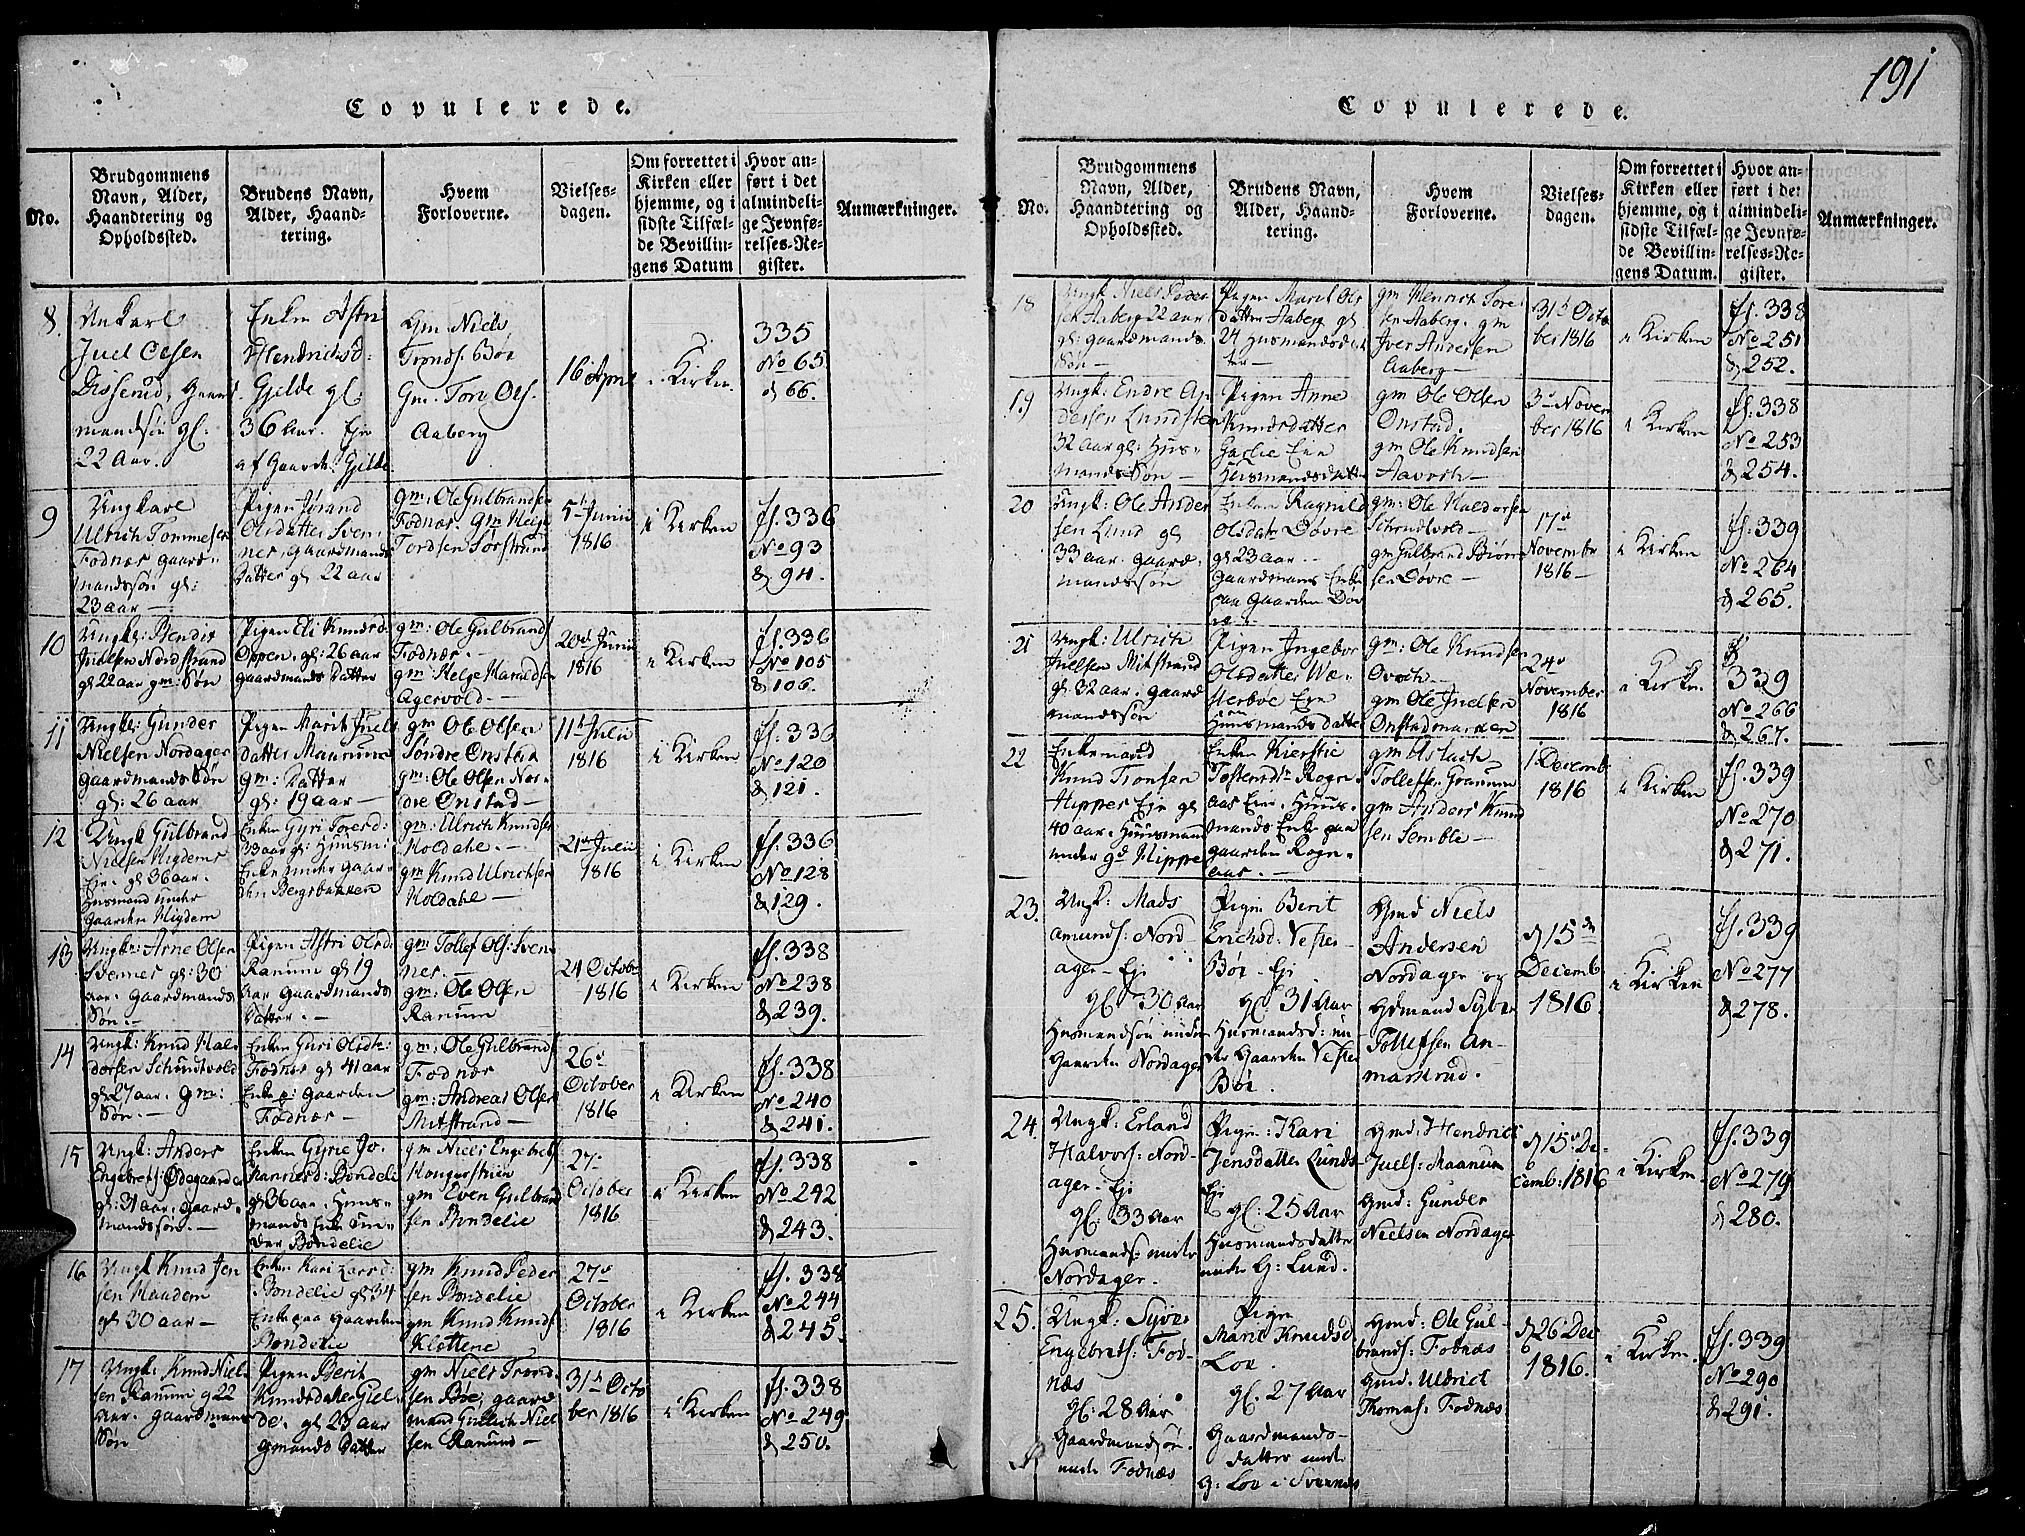 191
Copulerede.
No.
Brudgommens
Navn, Alder,
Haandtering og
Opholdssted.
Brudens Navn,
Alder, Haand-
tering.
Hvem
Forloverne.
Vielses-
dagen.
Om forrettet i
Kirken eller
hjemme, og i
sidste Tilfæl-
de Bevillin-
gens Datum
Hvor an-
ført i det
almindeli-
ge Jevnfø-
relses-Re-
gister.
Anmærkninger.
8.
Juel Olsen
mandsøn gl.
22 Aar.
Enken Astri
Hendrichsd:
Gjilde gl.
36 Aar. Eje
af Gaarde Gjilde
Gm Niels
Tronds. Bøe
Gm. Tore Ols.
Aaberg
16 April
i Kirken.
335
No 65.
& 66.
9
Ungkarl
Ulrich Tommesen
Fodnæs gaard-
mandssøn gl:
23 aar —
Pigen Jørand
Olsdatter Sven-
nes, Gaardmands
Datter gl 22 aar
gm: Ole Gulbrandsen
Fodnæs. Gm Helge
Tordsen Sørstrand
5t Junii
1816
i Kirken
fl. 336
No 93
& 94.
10
Ungk: Bendix
Juelsen Nordstrand
gl 22 aar gm: Søn
Pigen Eli Knudsd
Oppen. gl: 26 aar
gaardmands Datter
gm: Ole Gulbrands
Fodnæs. —
gm: Helge Haraldsen
Agervold. —
20d Junii
1816
i Kirken
fl. 336
No 105
& 106.
11
Ungk: Gunder
Nielsen Nordager
gaardmands Søn
gl: 26 aar
Pigen Marit Juels
datter Maanum
gm: Datter
gl: 19 aar —
gm Ole Olsen
Søndre Onstad
gm: Ole Olsen Nor-
dre Onstad —
11t Julii
1816
i Kirken
fl. 336
No 120
& 121.
12
Ungk Gulbrand
Nielsen Migdems
Eje. gl 36 aar.
Husmand under
Gaarden Migdem
Enken Gyri Toresd:
gl: Huusm:
Enke under gaar-
den Bergsbakken
gm: Ulrich Knudsen
Holdahl. —
gm Knud Ulrichsen
Holdahl —
21de Julii
1816
i Kirken
fl. 336
No 128
& 129.
13
Ungk: Arne Olsen
Svennes gl: 30
aar. Gaardmands
Søn. —
Pigen Astri Olsd:
Ranum gl 19
aar Gaardmands
Datter. —
gm: Tollef Ols: Sven-
nes. —
gm: Ole Olsen
Ranum
24 Octobr
1816
i Kirken
fl. 338
No 238
& 239.
14
Ungk: Knud Hal-
dorsen Schrindtvold
gl 27 aar. Gm:
Søn. —
Enken Guri Olsdtr:
Fodnæs gl 41 aar
Enke i gaarden
Fodnæs —
gm: Ole Gulbrands
Fodnæs
gm: Andreas Olsen
Mitstrand —
26d
October
1816
i Kirken
fl. 338
No 240
& 241.
15
Ungk: Anders
Engebrets: Ødegaarden
gl: 31 aar. gaard-
mandssøn. —
Enken Gyrie Jo-
hannesd: Bøndelie
gl 36 aar. Huus-
mands Enke un-
der Bøndelie
gm Niels Engebrets
Kongerstrøen
gm Even Gulbrand
sen Bøndelie
27d
October
1816
i Kirken
fl. 338
No 242
& 243.
16
Ungk Knud Jen
sen Haadem
gl 30 aar —
Enken Kari Larsd:
Bøndelie gl 34
Enke paa Gaarden
Bøndelie
gm Knud Peder
sen Bøndelie
gm Knud Knuds
Klettene
27d
October
1816
i Kirken
fl. 338
No 244
& 245.
17
Ungk: Knud Niel-
sen Ranum g 22
Aar. gaardmans
Søn
Pigen Berit
Knudsdatter Giel-
de. gl 23 aar
gmands Datter
gm Niels Trond-
sen Bøe, gaard
mand Gullich Niel
sen Ranum —
31d Octo
ber 1816
i Kirken
fl. 338
No 249
& 250.
Copulerede.
No.
Brudgommens
Navn, Alder,
Haandtering og
Opholdssted.
Brudens Navn,
Alder, Haand-
tering.
Hvem
Forloverne.
Vielses-
dagen.
Om forrettet i
Kirken eller
hjemme, og i
sidste Tilfæl-
de Bevillin-
gens Datum.
Hvor an-
ført i det
almindeli-
ge Jevnfø-
relses-Re-
gister.
Anmærkninger.
18
Ungk Niels Peder
sen Aaberg 22 aar
gl: gaardmands
Søn —
Pigen Marit Ols
datter Aaberg gl
24 Husmandsdat
ter —
gm Henrich Tore-
sen Aaberg. gm
Iver Andersen
Aaberg —
31d Octo
ber 1816
i Kirken
fl. 338
No 251
& 252.
19
Ungk. Endre An
dersen Lundsten
32 Aar gl: Hus-
mands Søn —
Pigen Anne
Knudsdatter
Garlie Eie
Husmandsdatter
gm Ole Olsen
Onstad.
gm Ole Knudsen
3d Novem
ber 1816
i Kirken
fl. 338
No 253
& 254.
20
Ungk: Ole Ander
sen Lund gl
33 aar. Gaard-
mandssøn
Enken Ragnild
Olsdatr Døvre
gl 23 aar —
Gaardmans Enke
paa Gaarden Døv
re. —
gm: Ole Haldorsen
Schrindtvold —
gm Gulbrand Biørn
sen Døvre —
17d
Novembr
1816 —
i Kirken
fl. 339
No 264
& 265.
21
Ungk: Ulrich
Juelsen Mitstrand
gl 32 aar. Gaard
mandssøn
Pigen Ingebor
Olsdatter We-
sterbøe Eie
Huusmandsdatter
gm: Ole Knudsen
gm Ole Juelsen
Onstadmarken
24d
November
1816
i Kirken
fl
339
No 266
& 267.
22
Enkemand
Knud Tronsen
Hippes Eje gl
40 aar. Huusmand
under gd Hippe
Enken Kierstie
Tostensdtr Rogn-
aas Eie. Huus-
mands Enke paa
gaarden Rogn-
aas. —
gm Aslach
Tollefsen Granum
gm Anders Knud
sen Semble —
1 Decemb
1816
i Kirken
fl. 339
No 270
& 271.
23.
Ungk: Mads
Amunds: Nord-
ager — Eje
gl. 30 Aar
Husmandsøn under
Gaarden Nordager
Pigen Berit
Erichsd: Vester-
Bøe — Eje
gl. 31 Aar
Husmandsd: un
der Gaarden Vester
Bøe.
Gmd Niels
Andersen
Nordager og
Gdmand Syver
Tollefsen An-
markrud.
d 15de
Decemb
1816.
i Kirken
fl. 339
No 277
& 278.
24.
Ungk: Erland
Halvors: Nord-
ager — Eje
gl: 33 Aar
Husmands: under
Nordager.
Pigen: Kari
Jensdatter Lunds
Eje
gl: 25 Aar
Husmandsdatter
under G: Lund.
Gmd: Hendrich
Juels: Maanum
Gmd: Gunder
Nielsen Nordager
d 15d De-
cemb: 1816
i Kirken.
fl. 339
No 279
& 280.
25.
Ungk: Syver
Engebrets: Fod-
næs
gl. 28 Aar
Gaardmandsøn
under Fodnæs
Pigen
Marit Knudsd
Loe.
gl. 27 Aar
Gaardmands-
datter under
G: Loe i Svennes
Gmd: Ole Gul-
brands: Fodnæs
Gmd: Uldrich
Thomas: Fodnæs
d 26 Dec
1816.
i Kirken.
fl. 339
No 290
& 291.